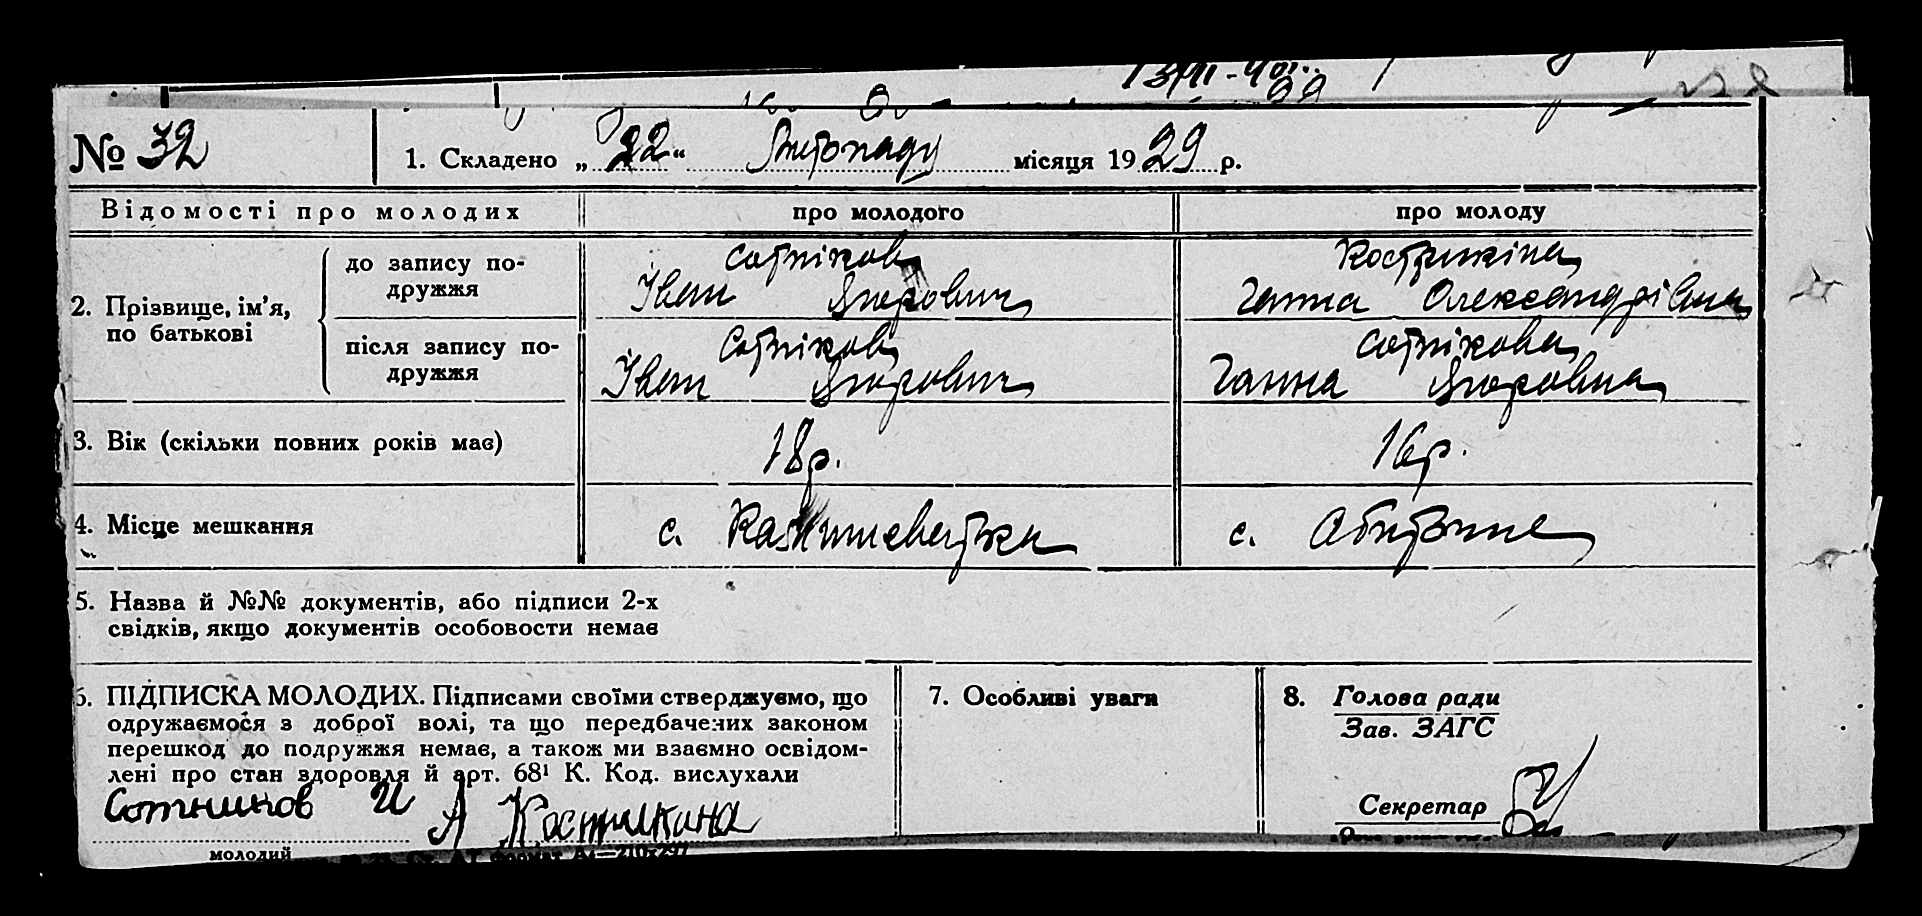 № 32
1. Складено „22“ Листопаду місяця 1929 р.
Відомості про молодих
про молодого
про молоду
2. Прізвище, ім’я, по батькові
до запису по-
дружжя
Сотніков
Іван
Костикіна
Ганна Олександрівна
після запису по-
дружжя
Сотніков
Іван
Сотнікова
Ганна
3. Вік (скільки повних років має)
18 р.
16 р.
4. Місце мешкання
с.
с. Обитошне
5. Назва й №№ документів, або підписи 2-х
свідків, якщо документів особовости немає
6. ПІДПИСКА МОЛОДИХ. Підписами своїми стверджуємо, що
одружаємося з доброї волі, та що передбачених законом
перешкод до подружжя немає, а також ми взаємно освідом-
лені про стан здоровля й арт. 68¹ К. Код. вислухали
Сотников И А Костикина
молодий
7. Особливі уваги
8. Голова ради
Зав. ЗАГС
Секретар